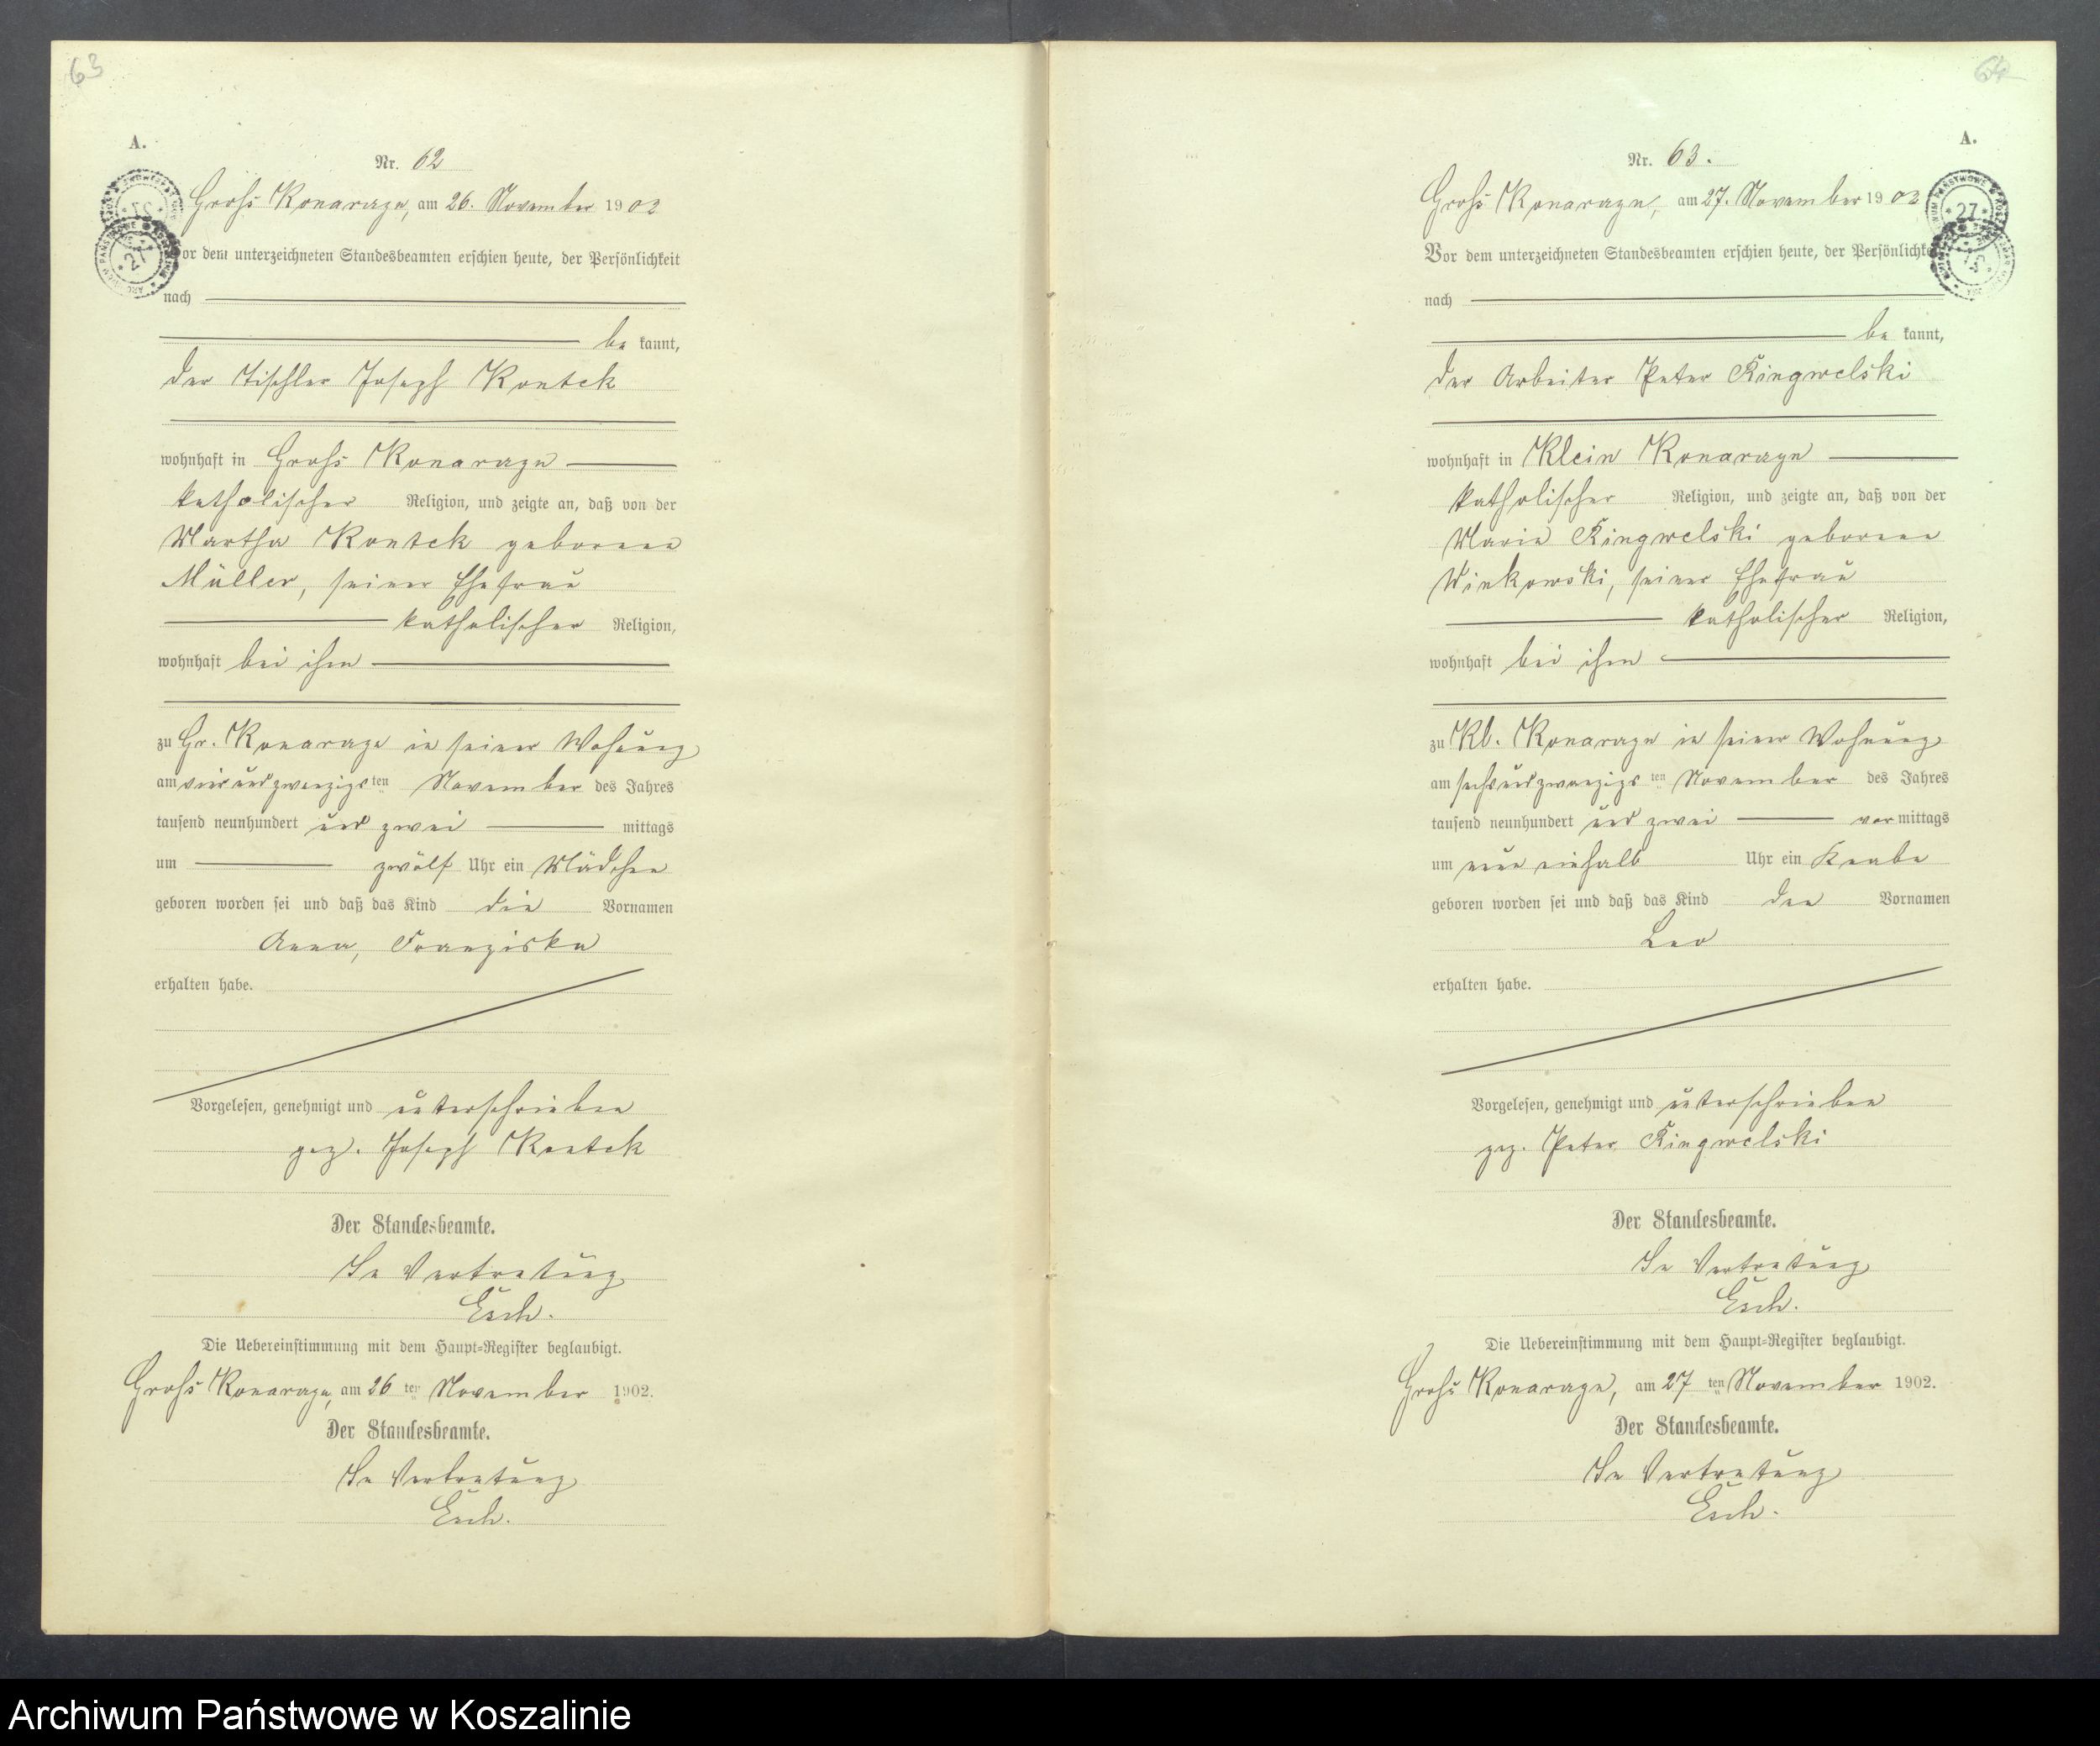 63
A.
Nr. 62
Groß Konarzyn, am 26. November 1902
Vor dem unterzeichneten Standesbeamten erschien heute, der Persönlichkeit
nach
be kannt,
der Tischler Joseph Kontek
wohnhaft in Groß Konarzyn
katholischer Religion, und zeigte an, daß von der
Martha Kontek geborene
Müller, seiner Ehefrau
katholischer Religion,
wohnhaft bei ihm
zu Gr. Konarzyn in seiner Wohnung
am vierundzwanzigsten November des Jahres
tausend neunhundert und zwei mittags
um zwölf Uhr ein Mädchen
geboren worden sei und daß das Kind die Vornamen
Anna, Franziska
erhalten habe.
Vorgelesen, genehmigt und unterschrieben
gez. Joseph Kontek
Der Standesbeamte.
In Vertretung
Esch.
Die Uebereinstimmung mit dem Haupt-Register beglaubigt.
Groß Konarzyn, am 26 ten November 1902.
Der Standesbeamte.
In Vertretung
Esch.
64
A.
Nr. 63.
Groß Konarzyn, am 27. November 1902
27
Vor dem unterzeichneten Standesbeamten erschien heute, der
nach
be kannt,
der Arbeiter Peter Ringwelski
wohnhaft in Klein Konarzyn
katholischer Religion, und zeigte an, daß von der
Maria Ringwelski geborene
Winkowski, seiner Ehefrau
katholischer Religion,
wohnhaft bei ihm
zu Kl. Konarzyn in seiner Wohnung
am sechsundzwanzigsten November des Jahres
tausend neunhundert und zwei vormittags
um neun einhalb Uhr ein Knabe
geboren worden sei und daß das Kind den Vornamen
Leo
erhalten habe.
Vorgelesen, genehmigt und unterschrieben
gez. Peter Ringwelski
Der Standesbeamte.
In Vertretung
Esch.
Die Uebereinstimmung mit dem Haupt-Register beglaubigt.
Groß Konarzyn, am 27 ten November 1902.
Der Standesbeamte.
In Vertretung
Esch.
Archiwum Państwowe w Koszalinie